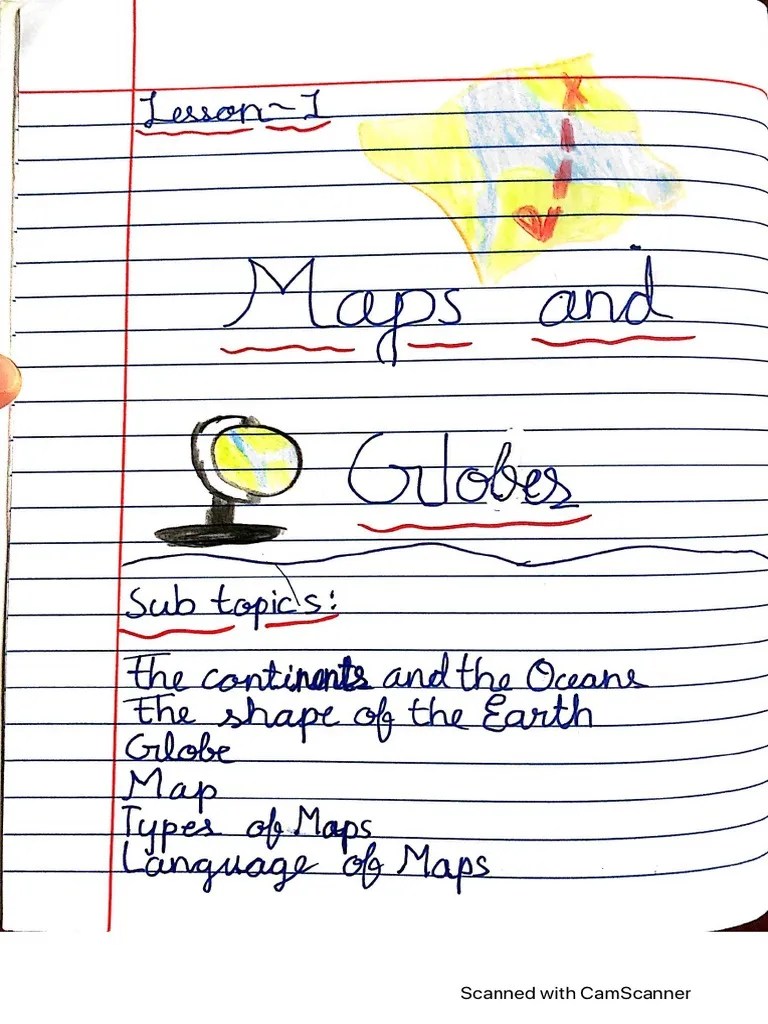 Lesson-1
Maps and
Globes
Sub topics:
The continents and the Oceans
The shape of the Earth
Globe
Map
Types of Maps
Language of Maps
Scanned with CamScanner